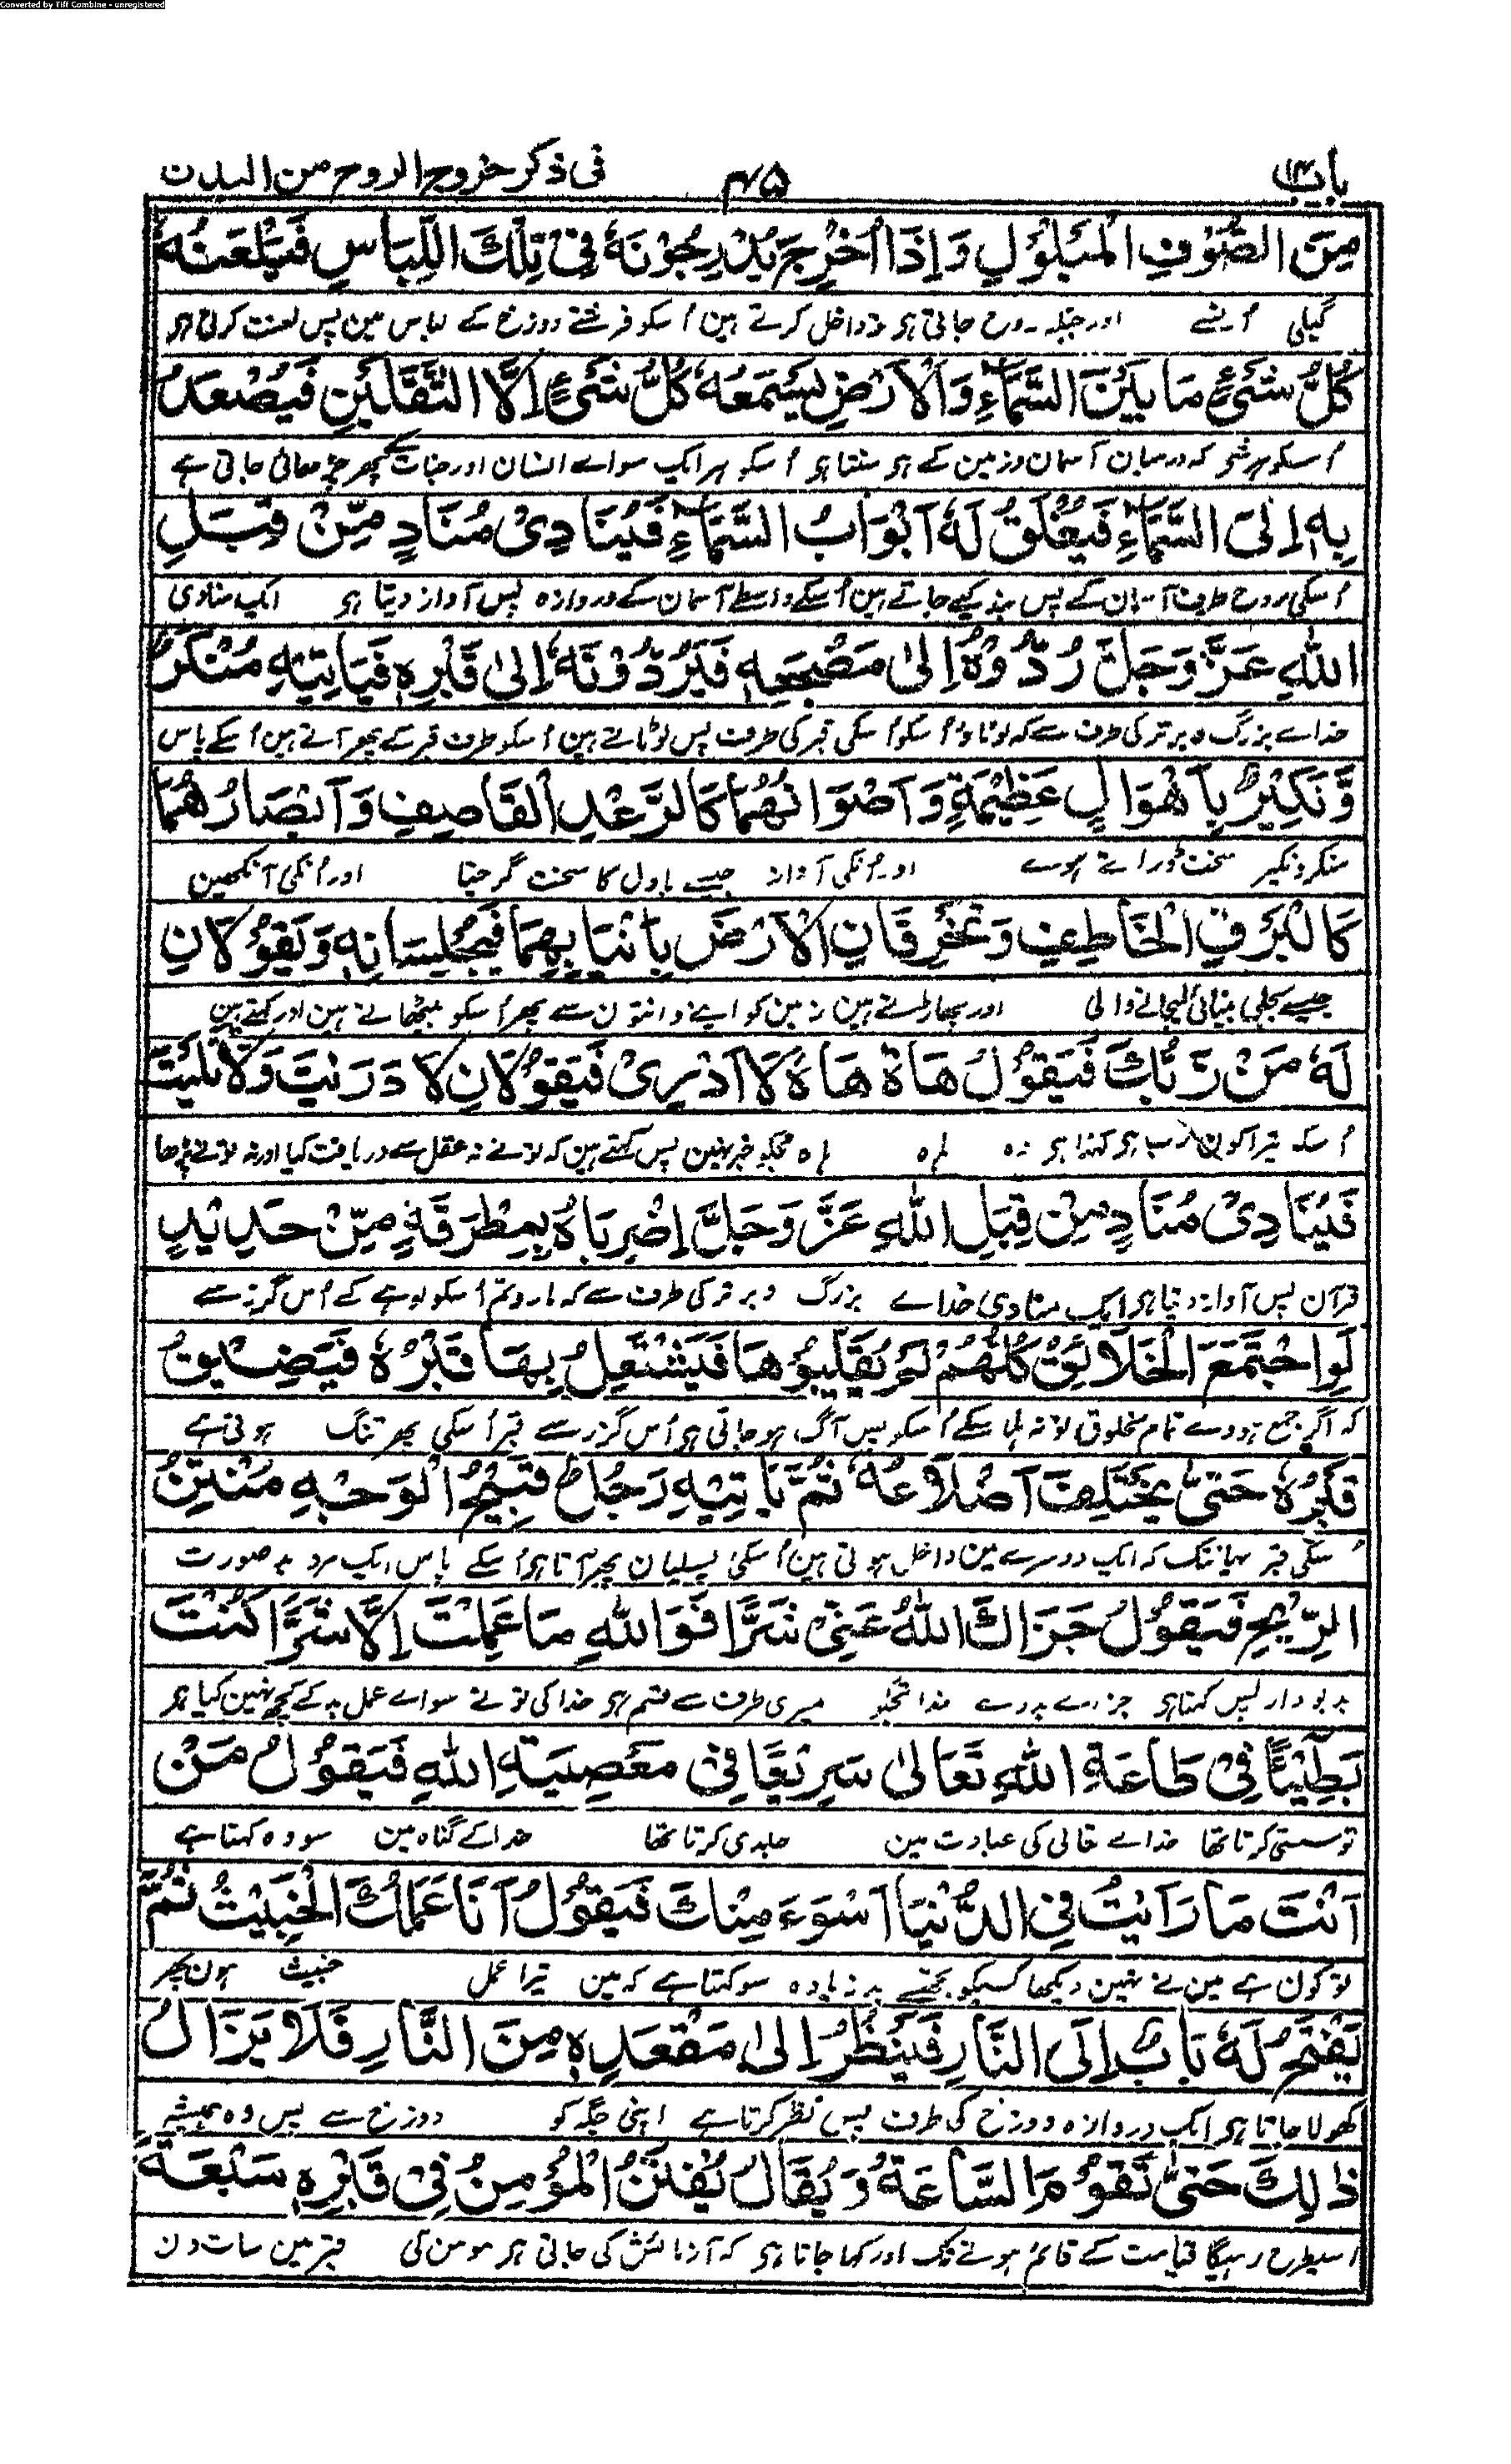 Converted by Tiff Combine - unregistered
باب ۱۳ ۴۵ فی ذکر خروج الروح من البدن
مِنَ الصُّوْفِ الْمَبْلُوْلِ وَاِذَا اُخْرِجَ يُدْرِجُوْنَهٗ فِیْ تِلْكَ اللِّبَاسِ فَيَلْعَنُهٗ
گیلی اور جبکہ روح جاتی ہو داخل کرتے ہین اُسکو فرشتے دوزخ کے لباس مین پس لعنت کرتی ہو
كُلُّ شَیْءٍ مَا بَيْنَ السَّمَآءِ وَالْاَرْضِ يَسْمَعُهٗ كُلُّ شَیْءٍ اِلَّا الثَّقَلَيْنِ فَيُصْعَدُ
اُسکو ہر شو کہ درمیان آسمان وزمین کے ہو سنتا ہو اُسکو ہر ایک سواے انسان اور جنات کے پھر چڑھائی جاتی ہے
بِهٖ اِلَى السَّمَآءِ فَيُغْلَقُ لَهٗ اَبْوَابُ السَّمَآءِ فَيُنَادِیْ مُنَادٍ مِّنْ قِبَلِ
اُسکی روح طرف آسمان کے پس بند کیے جاتے ہین اُسکے واسطے آسمان کے دروازہ پس آواز دیتا ہو ایک منادی
اللهِ عَزَّ وَجَلَّ رُدُّوْهُ اِلٰى مَضْجَعِهٖ فَيَرُدُّوْنَهٗ اِلٰى قَبْرِهٖ فَيَاْتِيْهِ مُنْكَرٌ
خداے بزرگ و برتر کی طرف سے کہ لوٹاؤ اُسکو اُسکی قبر کی طرف پس لوٹاتے ہین اُسکو طرف قبر کے پھر آتے ہین اُسکے پاس
وَّنَكِيْرٌ بِاَهْوَالٍ عَظِيْمَةٍ وَاَصْوَاتُهُمَا كَالرَّعْدِ الْقَاصِفِ وَاَبْصَارُهُمَا
منکر و نکیر سخت ڈراتے ہوے اور اُنکی آواز جیسے بادل کا سخت گرجنا اور اُنکی آنکھین
كَالْبَرْقِ الْخَاطِفِ وَتَخْرِقَانِ الْاَرْضَ بِاَنْيَابِهِمَا فَيُجْلِسَانِهٖ وَيَقُوْلَانِ
جیسے بجلی بینائی لیجانے والی اور پھاڑتے ہین زمین کو اپنے دانتون سے پھر اُسکو بیٹھاتے ہین اور کہتے ہین
لَهٗ مَنْ رَّبُّكَ فَيَقُوْلُ هَاهْ هَاهْ لَا اَدْرِیْ فَيَقُوْلَانِ لَا دَرَيْتَ وَلَا تَلَيْتَ
اُسکو تیرا کون رب ہو کہتا ہو ہاہ ہاہ مجکو خبر نہین پس کہتے ہین کہ تونے نہ عقل سے دریافت کیا اور نہ تونے پڑھا
فَيُنَادِیْ مُنَادٍ مِنْ قِبَلِ اللهِ عَزَّ وَجَلَّ اِضْرِبَاهُ بِمِطْرَقَةٍ مِّنْ حَدِيْدٍ
قرآن پس آواز دیتا ہو ایک منادی خداے بزرگ و برتر کی طرف سے کہ مارو تم اُسکو لوہے کے اُس گرز سے
لَوِ اجْتَمَعَ الْخَلَائِقُ كُلُّهُمْ لَمْ يُقَلِّبُوْهَا فَيَشْتَعِلُ بِهَا قَبْرُهٗ فَيَضِيْقُ
کہ اگر جمع ہووے تمام مخلوق تو نہ ہلا سکے اُسکو پس آگ ہو جاتی ہو اُس گرز سے قبر اُسکی پھر تنگ ہوتی ہے
قَبْرُهٗ حَتّٰى يَخْتَلِفَ اَضْلَاعُهٗ ثُمَّ يَاْتِيْهِ رَجُلٌ قَبِيْحُ الْوَجْهِ مُنْتِنُ
اُسکی قبر یہانتک کہ ایک دوسرے مین داخل ہوتی ہین اُسکی پسلیان پھر آتا ہو اُسکے پاس ایک مرد بد صورت
الرِّيْحِ فَيَقُوْلُ جَزَاكَ اللهُ عَنِّیْ شَرًّا فَوَاللهِ مَا عَمِلْتَ اِلَّا شَرًّا كُنْتَ
بدبودار پس کہتا ہو جزاے بد دے خدا تجکو میری طرف سے قسم ہو خدا کی تونے سواے عمل بد کے کچھ نہین کیا ہو
بَطِيْئًا فِیْ طَاعَةِ اللهِ تَعَالٰى سَرِيْعًا فِیْ مَعْصِيَةِ اللهِ فَيَقُوْلُ مَنْ
تو سستی کرتا تھا خداے تعالی کی عبادت مین جلدی کرتا تھا خدا کے گناہ مین سو وہ کہتا ہے
اَنْتَ مَا رَاَيْتُ فِی الدُّنْيَا اَسْوَءَ مِنْكَ فَيَقُوْلُ اَنَا عَمَلُكَ الْخَبِيْثُ ثُمَّ
تو کون ہے مین نے نہین دیکھا کسیکو تجھسے بد زیادہ سو کہتا ہے کہ مین تیرا عمل خبیث ہون پھر
يُفْتَحُ لَهٗ بَابٌ اِلَى النَّارِ فَيَنْظُرُ اِلٰى مَقْعَدِهٖ مِنَ النَّارِ فَلَا يَزَالُ
کھولا جاتا ہو ایک دروازہ دوزخ کی طرف پس نظر کرتا ہے اپنی جگہ کو دوزخ سے پس وہ ہمیشہ
ذٰلِكَ حَتّٰى تَقُوْمَ السَّاعَةُ وَيُقَالُ يُفْتَنُ الْمُؤْمِنُ فِیْ قَبْرِهٖ سَبْعَةَ
اسیطرح رہیگا قیامت کے قائم ہونے تک اور کہا جاتا ہو کہ آزمائش کی جاتی ہو مومن کی قبر مین سات دن